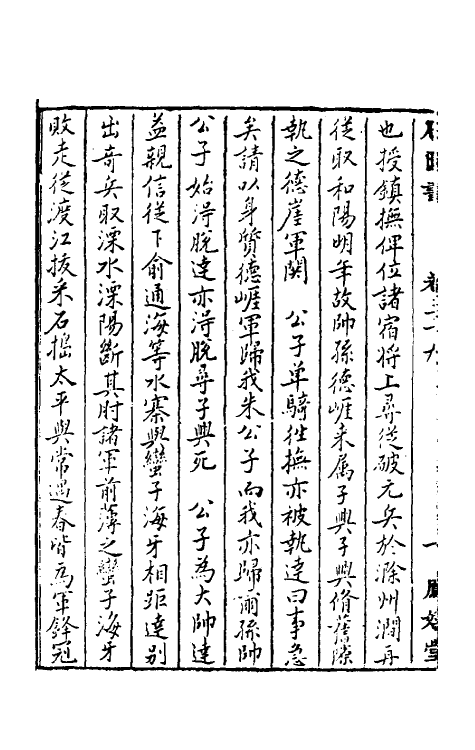 石匱書　卷二十九　一　鳳嬉堂
也授鎮撫俾位諸宿將上尋従破元兵於滁州澗再
従取和陽明年故帥孫德崖来属子興子興脩舊隙
執之德崖軍閧　公子单騎往撫亦被執達曰事急
矣請以身質德崖軍歸我朱公子而我亦歸爾孫帥
公子始淂脫達亦淂脫尋子興死　公子為大帥達
益親信従下俞通海等水寨與蠻子海牙相距達别
出竒兵取溧水溧陽斷其肘諸軍前薄之蠻子海牙
敗走従渡江拔采石搗太平與常遇春皆為軍鋒冠